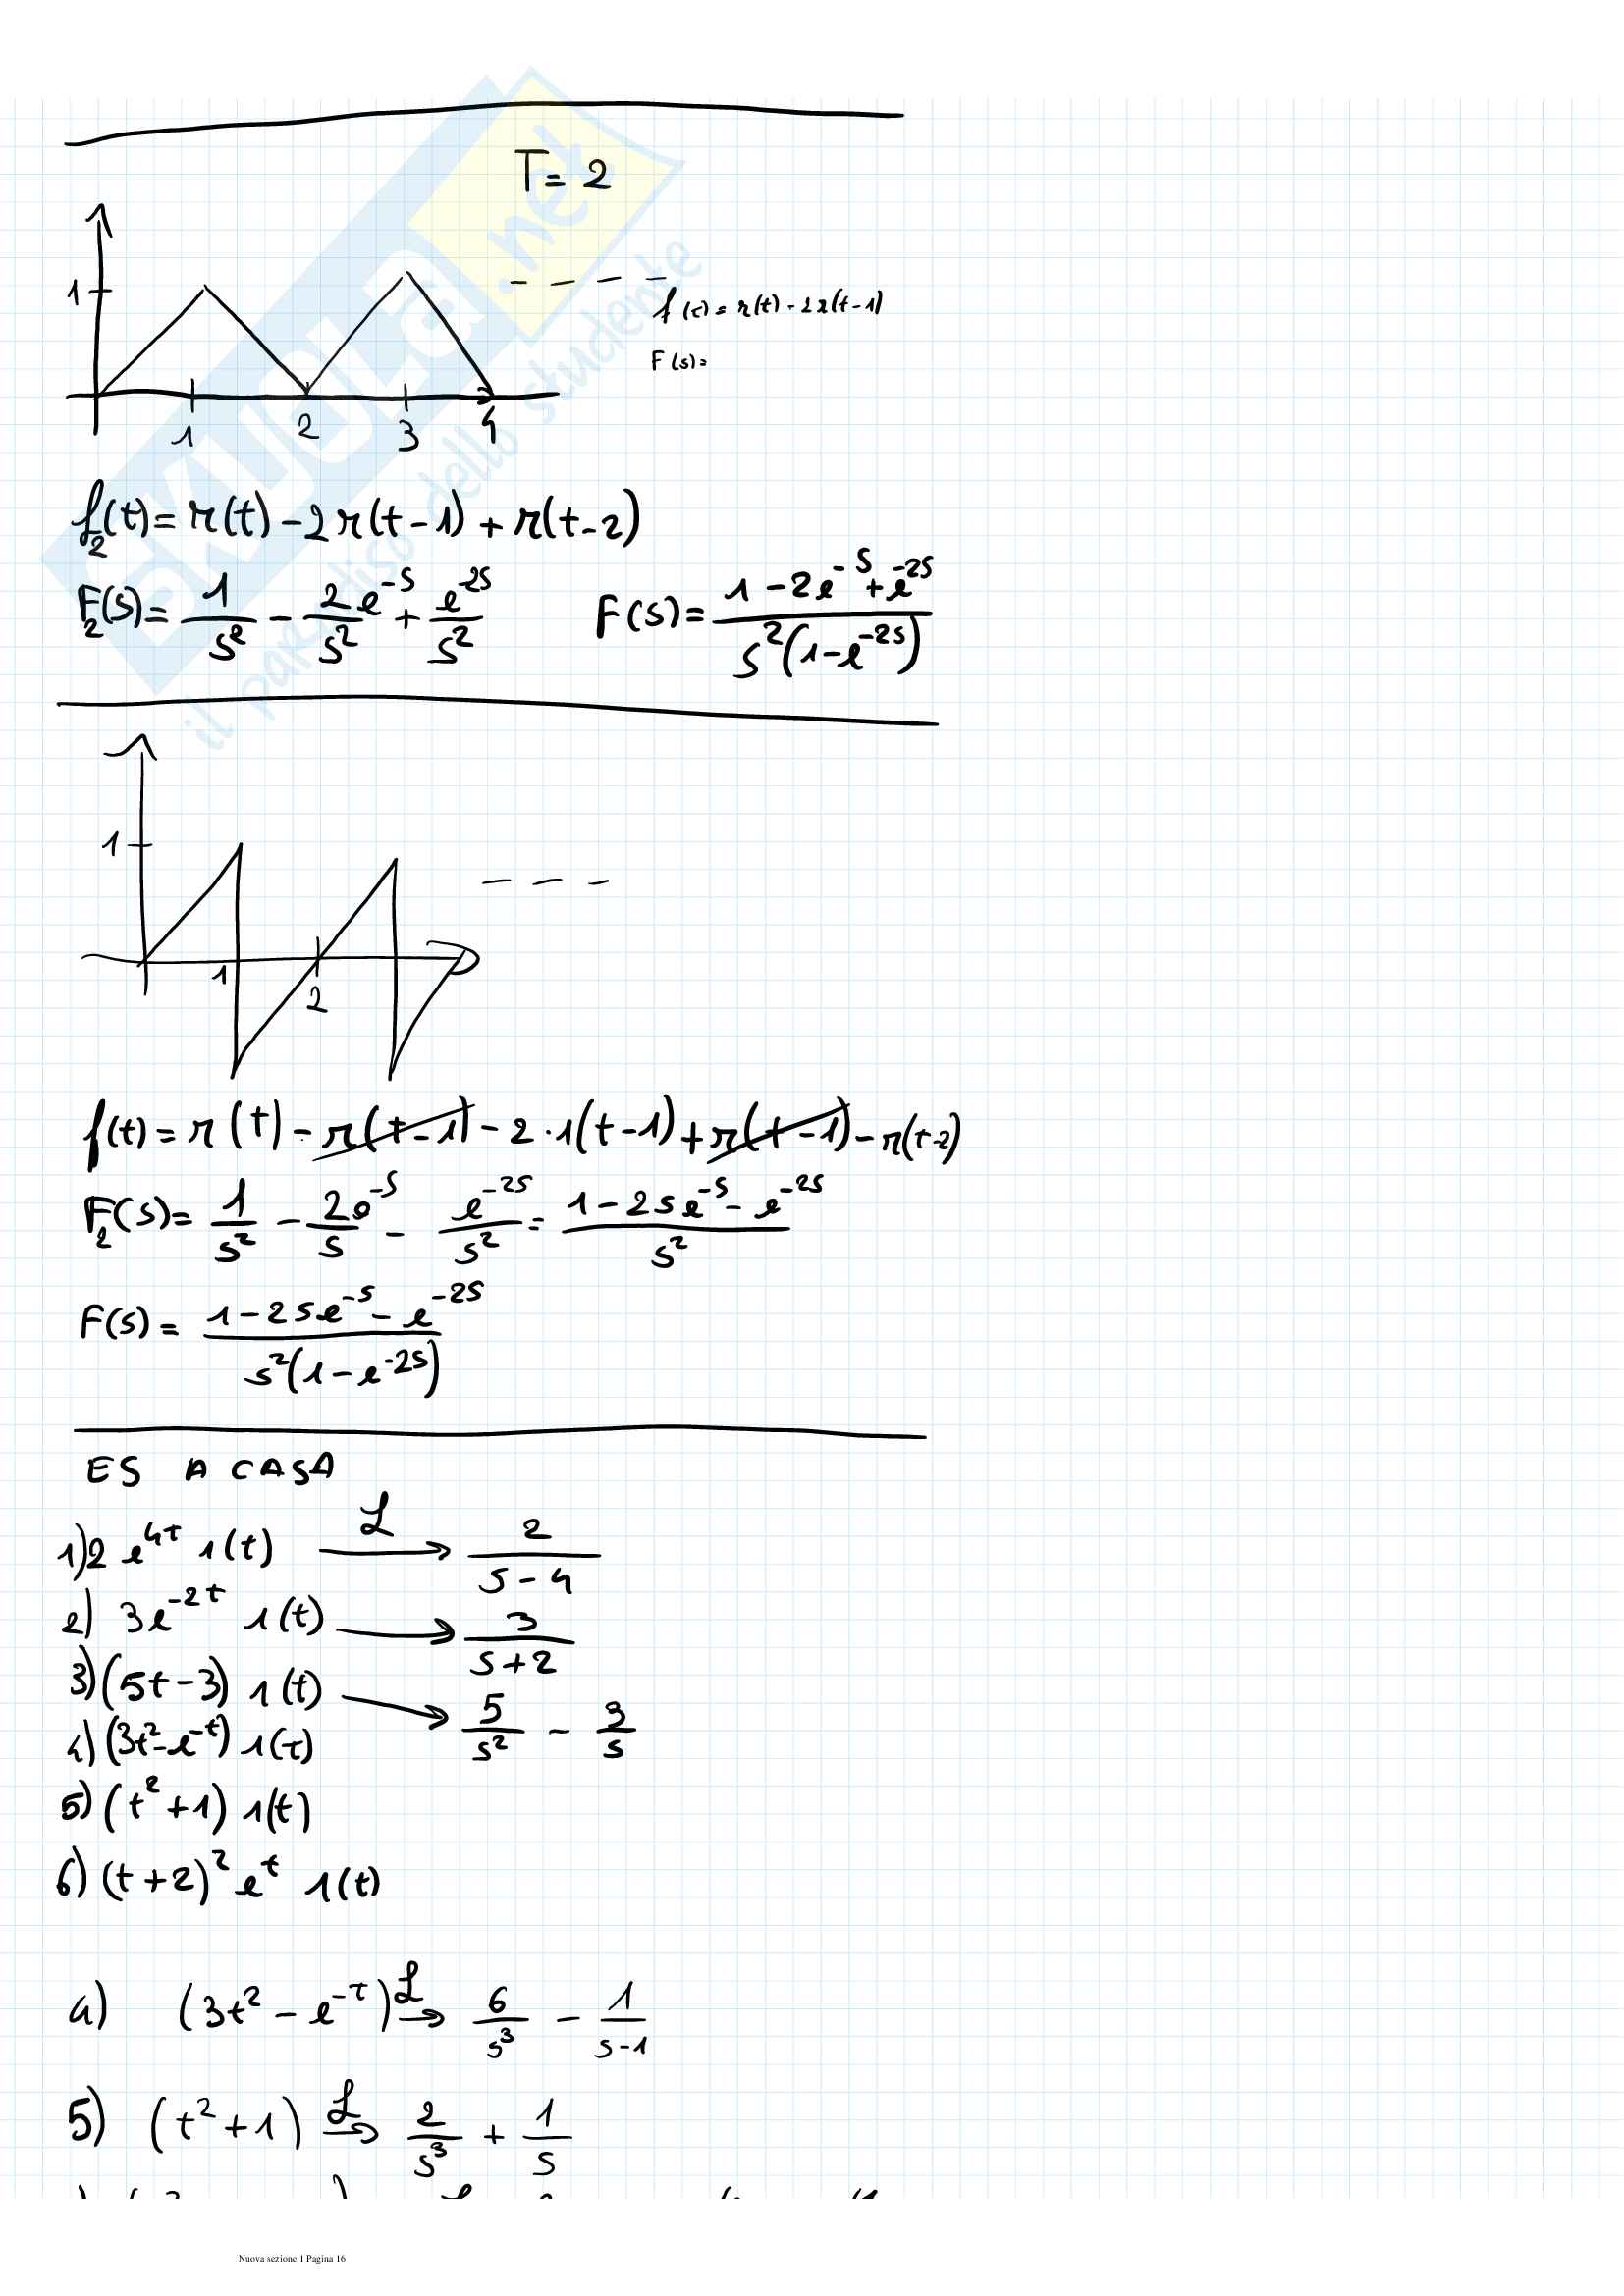 T= 2
1
1 2 3 4
f(t) = r(t) - 2r(t-1)
F(s)=
f₂(t) = r(t) - 2r(t-1) + r(t-2)
F₂(s) = 1/s² - 2/s² e^-s + e^-2s/s²    F(s) = (1 - 2e^-s + e^-2s)/(s²(1-e^-2s))
1
1
2
f(t) = r(t) - r(t-1) - 2·1(t-1) + r(t-1) - r(t-2)
F₂(s) = 1/s² - 2e^-s/s - e^-2s/s² = (1 - 2se^-s - e^-2s)/s²
F(s) = (1 - 2se^-s - e^-2s)/(s²(1-e^-2s))
ES A CASA
1) 2 e^4t 1(t) ℒ→ 2/(s-4)
2) 3e^-2t 1(t) → 3/(s+2)
3) (5t-3) 1(t) → 5/s² - 3/s
4) (3t²-e^-t) 1(t)
5) (t²+1) 1(t)
6) (t+2)² e^t 1(t)
4) (3t² - e^-t) ℒ→ 6/s³ - 1/(s-1)
5) (t²+1) ℒ→ 2/s³ + 1/s
Nuova sezione 1 Pagina 16
SKUOLA.net
il paradiso dello studente